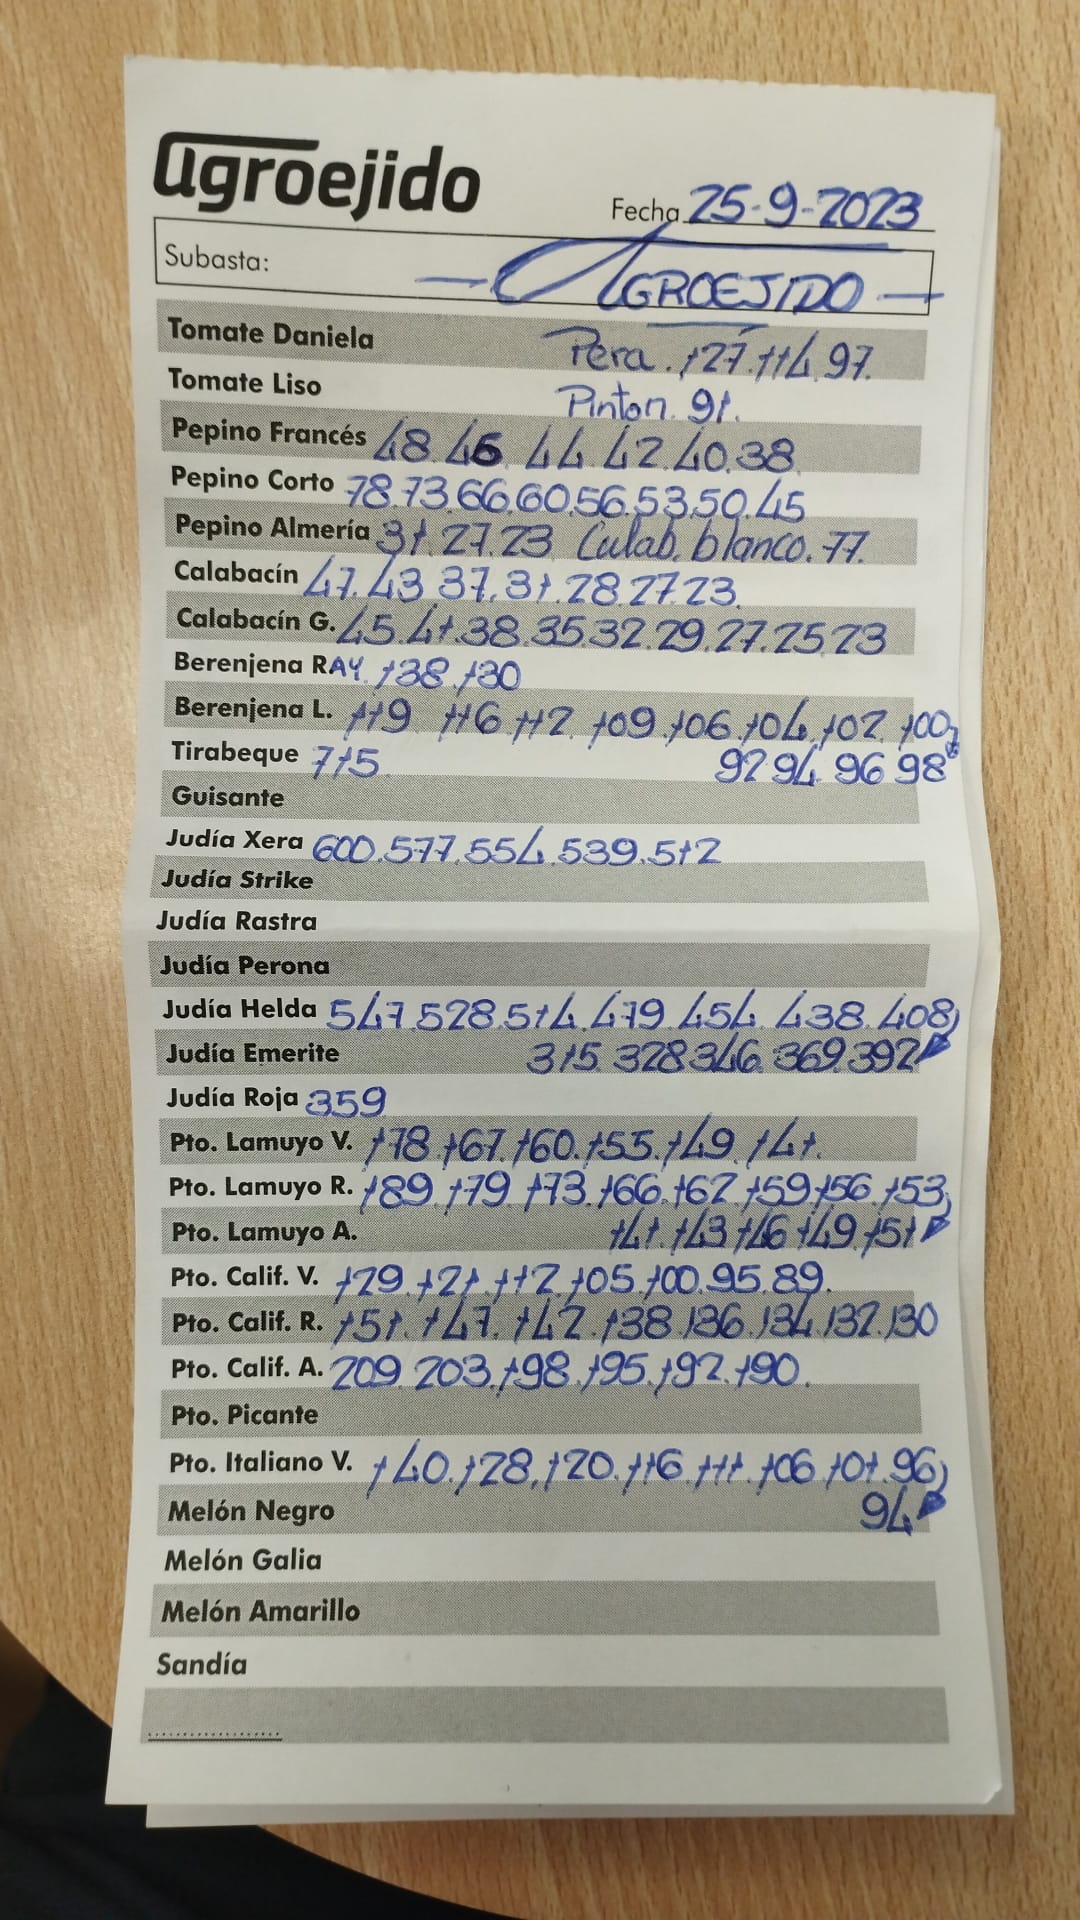 agroejido
Fecha 25-9-2023
Subasta: — AGROEJIDO —
Tomate Daniela Pera. 127. 114. 97.
Tomate Liso Pinton. 91.
Pepino Francés 48. 46. 44. 42. 40. 38.
Pepino Corto 78. 73. 66. 60. 56. 53. 50. 45
Pepino Almería 31. 27. 23 Calab. blanco. 77.
Calabacín 47. 43 37. 31. 28. 27. 23.
Calabacín G. 45. 41. 38. 35. 32. 29. 27. 25. 23
Berenjena RAY. 138. 130
Berenjena L. 119 116. 112. 109. 106. 104. 102. 100
Tirabeque 715. 92 94. 96 98
Guisante
Judía Xera 600. 577. 554. 539. 512
Judía Strike
Judía Rastra
Judía Perona
Judía Helda 547. 528. 514. 479. 454. 438. 408
Judía Emerite 315. 328. 346. 369. 392
Judía Roja 359
Pto. Lamuyo V. 178. 167. 160. 155. 149. 141.
Pto. Lamuyo R. 189. 179. 173. 166. 162. 159. 156. 153
Pto. Lamuyo A. 141. 143. 146. 149. 151
Pto. Calif. V. 129. 121. 112. 105. 100. 95. 89.
Pto. Calif. R. 151. 147. 142. 138. 136. 134. 132. 130
Pto. Calif. A. 209. 203. 198. 195. 192. 190.
Pto. Picante
Pto. Italiano V. 140. 128. 120. 116. 111. 106. 101. 96
Melón Negro 94
Melón Galia
Melón Amarillo
Sandía